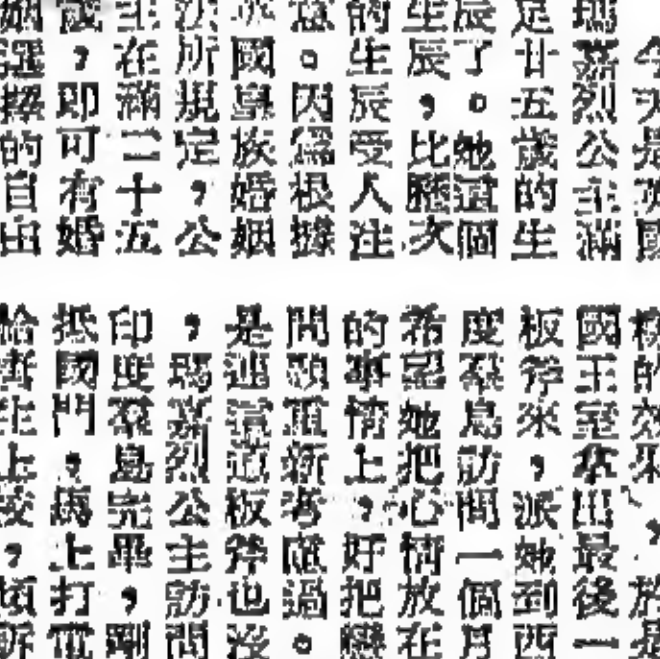 瑪嘉烈公主滿
足廿五歲的生
辰了。她這個
生辰,比歷次
的生辰受人注
意。因爲根據
國皇族婚姻
所規定,公
主在滿二十五
歲,即可有婚
姻選擇的自由
的效果,
國王室拿出最後一
板斧來,派她到西
度羣島訪問一個月
希望她把心情放在
的事情上,好把戀
問題重新考慮過。
是連這道板斧也沒
,瑪嘉烈公主訪問
印度羣島完畢,剛
抵國門,馬上打電
給生上校,傾訴